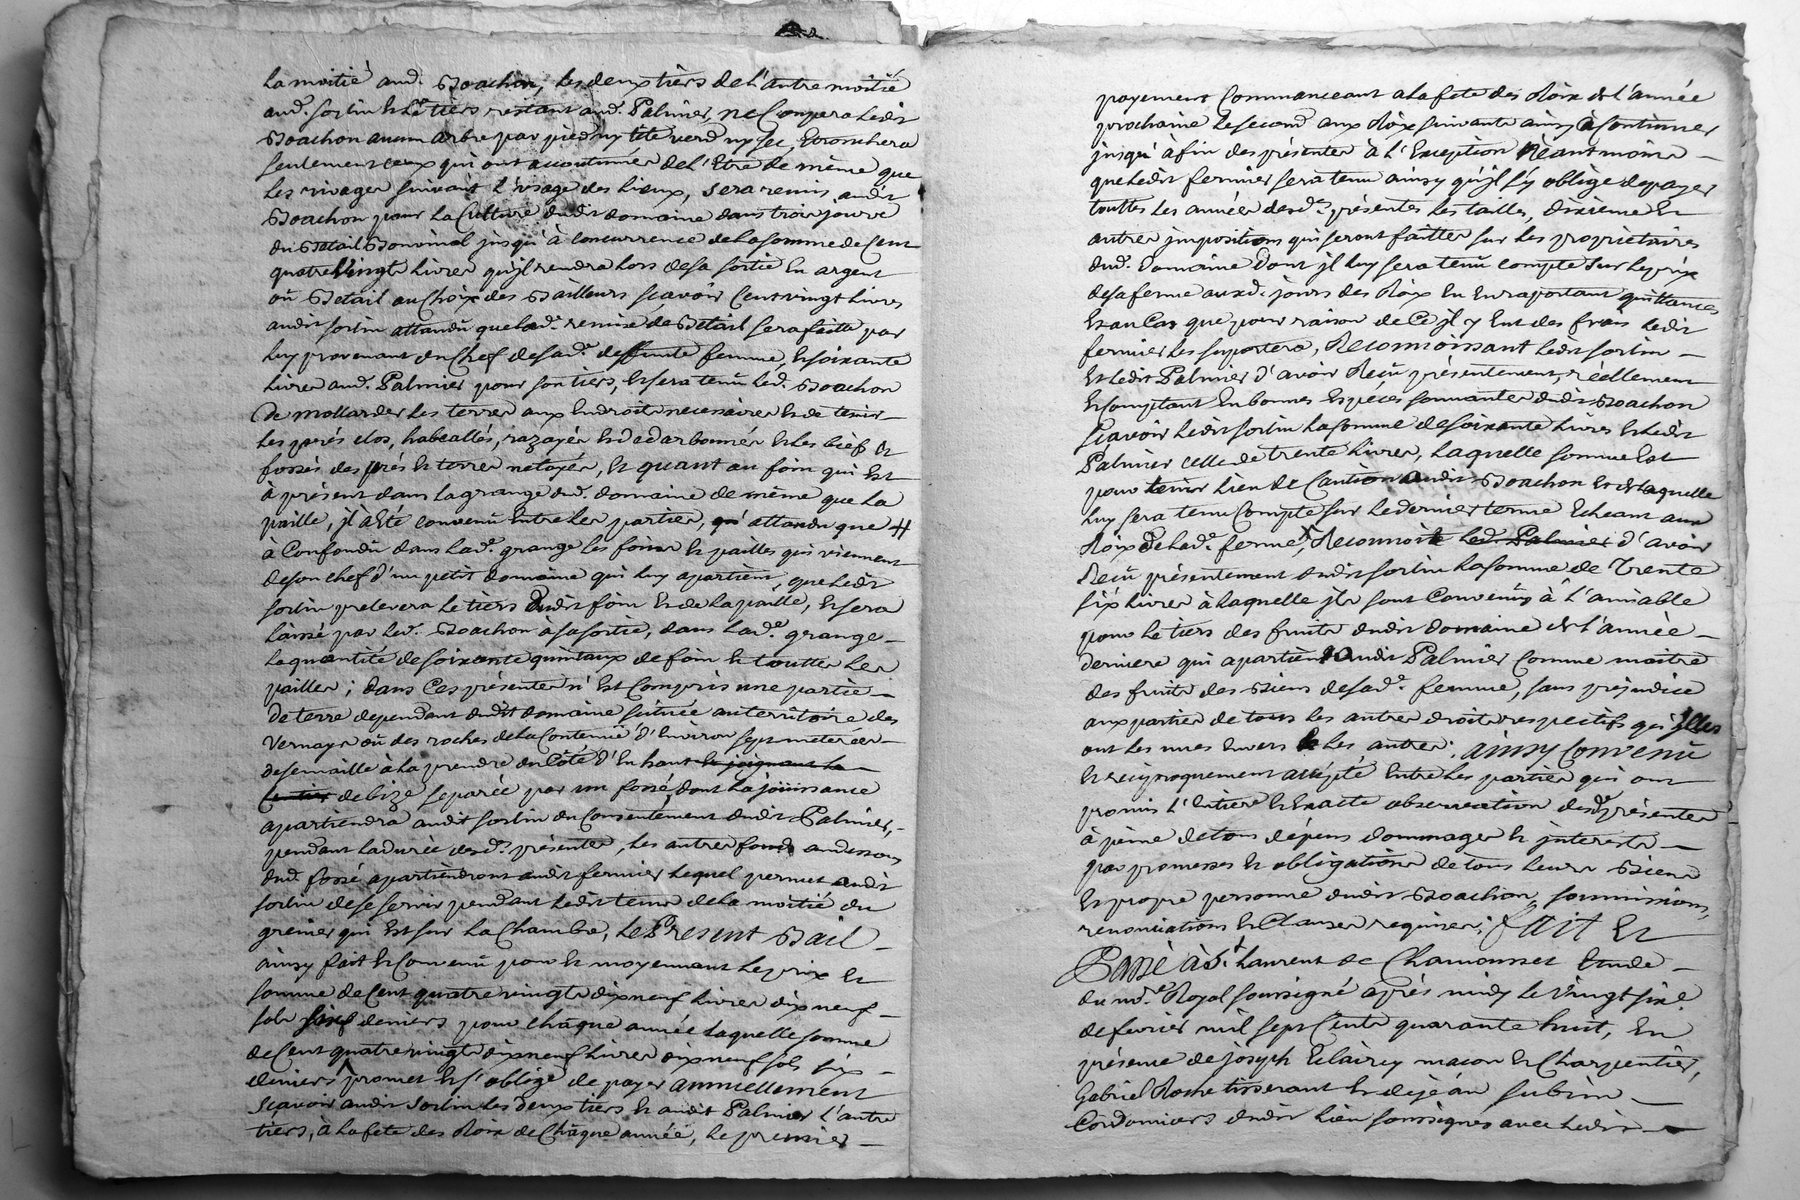 la moitié aud. Boachon, les deux tiers de l'autre moitié
aud. sorlin & le tiers restant aud. Palmier, ne Coupera ledit
Boachon aucun arbre par pied ny tête verd ny sec, Ebronchera
seulement ceux qui ont accoutumés de l'Etre de même que
les rivages suivant l'usage des lieux, sera remis audit
Boachon pour la Culture dudit domaine dans trois jours
du Bétail Bouvinal jusqu'à concurrence de la somme de Cent
quatre Vingts livres qu'jl rendra lors de sa sortie En argent
où Betail au Choix des Bailleurs scavoir Cent vingt livres
audit sorlin attandû que lad.e remise de Bétail sera faitte par
luy provenant du Chef de sad.e deffunte femme, & soixante
livres aud. Palmier pour son tiers, & sera tenû led. Boachon
de mollarder les terres aux Endroits necessaires & de tenir
les prés clos, razayés & les bièfs &
fossés des prés & terres netoyés, & quant au foin qui Est
à présent dans la grange dud. domaine de même que la
paille, jl à Eté convenû Entre les parties, qu' attandu que #
à Confondû dans lad.e grange les foins & pailles qui viennent
de son chef d'un petit domaine qui luy apartient, que ledit
sorlin prelevera le tiers dudit foin & de la paille, & sera
laissé par led. Boachon à sa sortie, dans lad.e grange
la quantité de soixante quintaux de foin & touttes les
pailles; dans Ces présentes n'Est Compris une partie
de terre dependant dudit domaine scituée au territoire des
Vernays où des roches de la Contenûe d'Environ sept meterées
de semaille à la prendre du Côté d'En haut & joignant le
de bize separée par un fossé, dont la joüissance
apartiendra audit sorlin du Consentement dudit Palmier,
pendant la durée desd. présentes, les autres fonds audessous
dud. fossé apartiendront audit fermier lequel permet audit
sorlin de se servir pendant ledit tems de la moitié du
grenier qui Est sur la Chambre, le Present Bail
ainsy fait & Convenû pour & moyennant le prix &
somme de Cent quatre vingts dix neuf livres dix neuf
sols six deniers pour chaque année laquelle somme
de Cent quatre vingts dix neuf livres dix neuf sols six
deniers promet & s'oblige de payer annuellement
scavoir audit sorlin les deux tiers & audit Palmier l'autre
tiers, à la fete des Roix de Chaque année, le premier
payement Commanceant a la fete des Roix de l'année
prochaine le second aux Roix suivants ainsy à Continuer
jusqu'à fin des présentes à l'Exception Néantmoins
que ledit fermier sera tenu ainsy qu'jl s'y oblige de payer
touttes les années desd. présentes les tailles, dixieme &
autres jmpositions qui seront faittes sur les proprietaires
dud. domaine dont jl luy sera tenû compte sur le prix
de sa ferme auxd. jours des Roix En En raportant quittances
& au Cas que pour raison de Ce jl y Eut des frais ledit
fermier les suportera, Reconnoissant ledit sorlin
& ledit Palmier d'avoir Reçû présentement, réellement
& Comptant En bonnes Especes sonnantes dudit Boachon
Scavoir ledit sorlin la somme de soixante livres & ledit
Palmier celle de trente livres, laquelle somme Est
pour tenir lieu de Caution audit Boachon & de laquelle
luy sera tenu Compte sur le dernier terme Echeant aux
Roix de lad.e ferme, Reconnoit led. Palmier d'avoir
Reçû présentement dudit sorlin la somme de Trente
six livres à laquelle jls sont Convenûs à l'amiable
pour le tiers des fruits dudit domaine de l'année
derniere qui apartient audit Palmier Comme maitre
des fruits des Biens de sad.e femme, sans prejudice
aux parties de tous les autres droits respectifs qu'jlles
ont les unes Envers les autres. ainsy Convenû
& reciproquement accepté Entre les parties qui ont
promis l'Entiere & Exacte observation desd. présentes
à peine de tous dépens dommages & jnterests
par promesses & obligations de tous leurs Biens
& propre personne dudit Boachon, soumissions,
renonciations & Clauses requises; fait Et
Passé à S.t Laurent de Chamousset Etude
du no.re Royal soussigné après midy le Vingt six.e
de fevrier mil sept Cents quarante huit, En
présence de joseph Eclairey masson & Charpentier,
Gabriel Roche tisserant & de jéan subrin
Cordonniers dudit lieu soussignés avec ledit